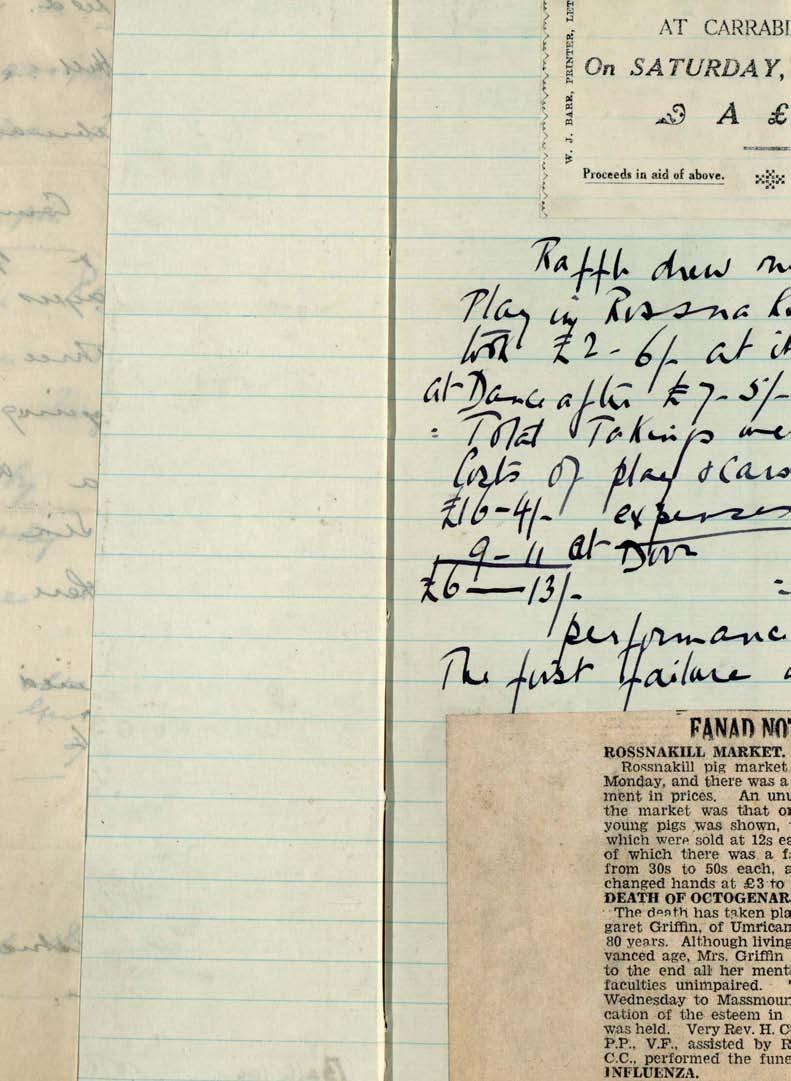 AT CARRABI
On SATURDAY,
A £
W. J. BARR, PRINTER, LET
Proceeds in aid of above.
Raffle drew
Play in Rossna
took £2-6/- at
at Dance after £7-5/-
= Total Takings we
Costs of play & cars
£16-4/- expenses
9-11 at Door
£6—13/- =
performanc
The first failure
FANAD NOT
ROSSNAKILL MARKET.
Rossnakill pig market
Monday, and there was a
ment in prices. An unu
the market was that on
young pigs was shown,
which were sold at 12s ea
of which there was a fa
from 30s to 50s each, a
changed hands at £3 to
DEATH OF OCTOGENAR
The death has taken pla
garet Griffin, of Umrican
80 years. Although living
vanced age, Mrs. Griffin
to the end all her ment
faculties unimpaired.
Wednesday to Massmoun
cation of the esteem in
was held. Very Rev. H. C
P.P., V.F., assisted by R
C.C., performed the fune
INFLUENZA.